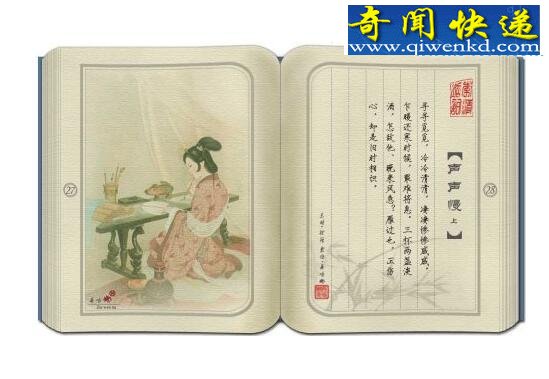 奇闻快递
www.qiwenkd.com
27
28
【声声慢 上】
寻寻觅觅，冷冷清清，凄凄惨惨戚戚。
乍暖还寒时候，最难将息，三杯两盏淡
酒，怎敌他、晚来风急？雁过也，正伤
心，却是旧时相识。